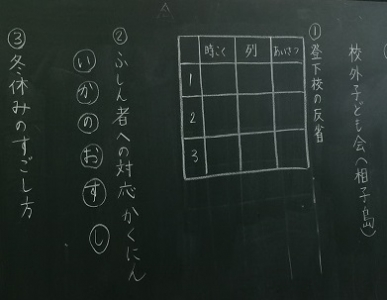 校外子ども会〈相子島〉
①登下校の反省
時こく 列 あいさつ
1
2
3
②ふしん者への対応かくにん
いかのおすし
③冬休みのすごし方